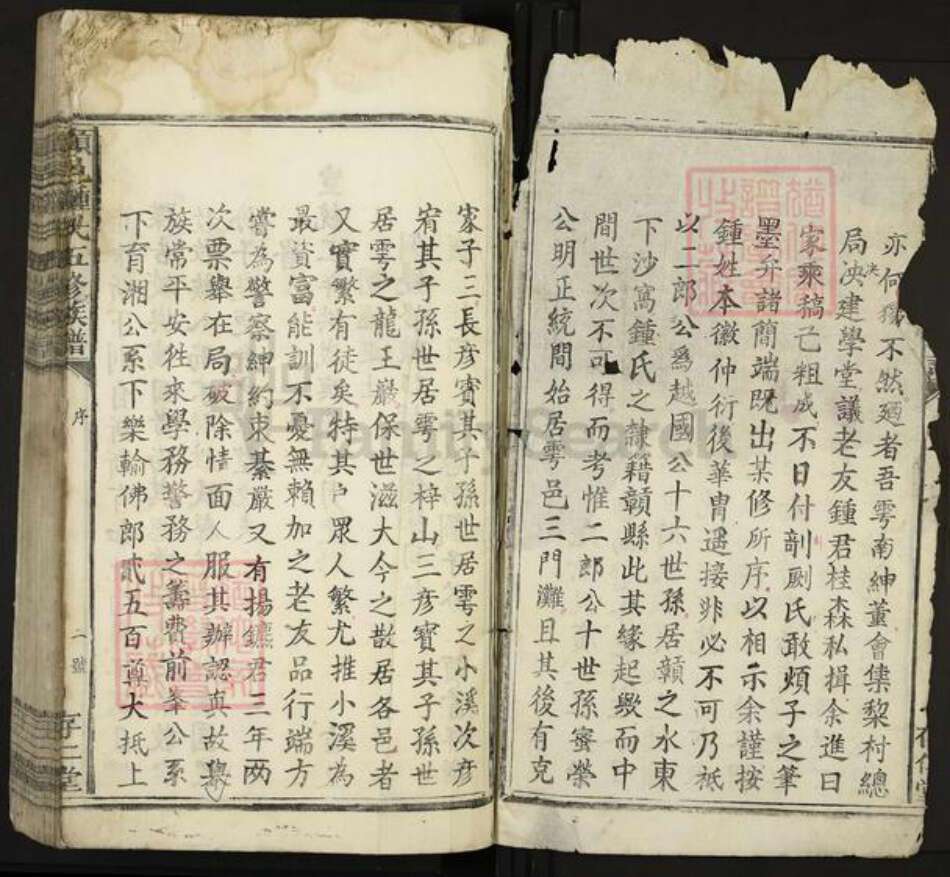 亦何獨不然廼者吾雩南紳董會集黎村總
局決泱建學堂議老友鍾君桂森私揖余進曰
家乘稿已粗成不日付剞劂氏敢煩子之筆
墨弁諸簡端既出某修所序以相示余謹按
鍾姓本徽仲衍後華胄遥接非必不可乃祗
以二郎公爲越國公十六世孫居贛之水東
下沙窩鍾氏之隷籍贛縣此其緣起歟而中
間世次不可得而考惟二郎公十世孫寧榮
公明正統間始居雩邑三門灘且其後有克
家子三長彦賓其子孫世居雩之小溪次彦
宥其子孫世居雩之梓山三彦寶其子孫世
居雩之龍王巖保世滋大今之散居各邑者
又實繁有徒矣特其户眾人繁尤推小溪為
最資富能訓不憂無賴加之老友品行端方
嘗為警察紳約束綦嚴又有揚鑣君三年兩
次票舉在局破除情面人服其辦認真故舉
族常平安徃來學務警務之籌費前峯公系
下育湘公系下樂輸佛郎貳五百尊大抵上
贛邑鍾氏五修族譜
序
二號
存仁堂